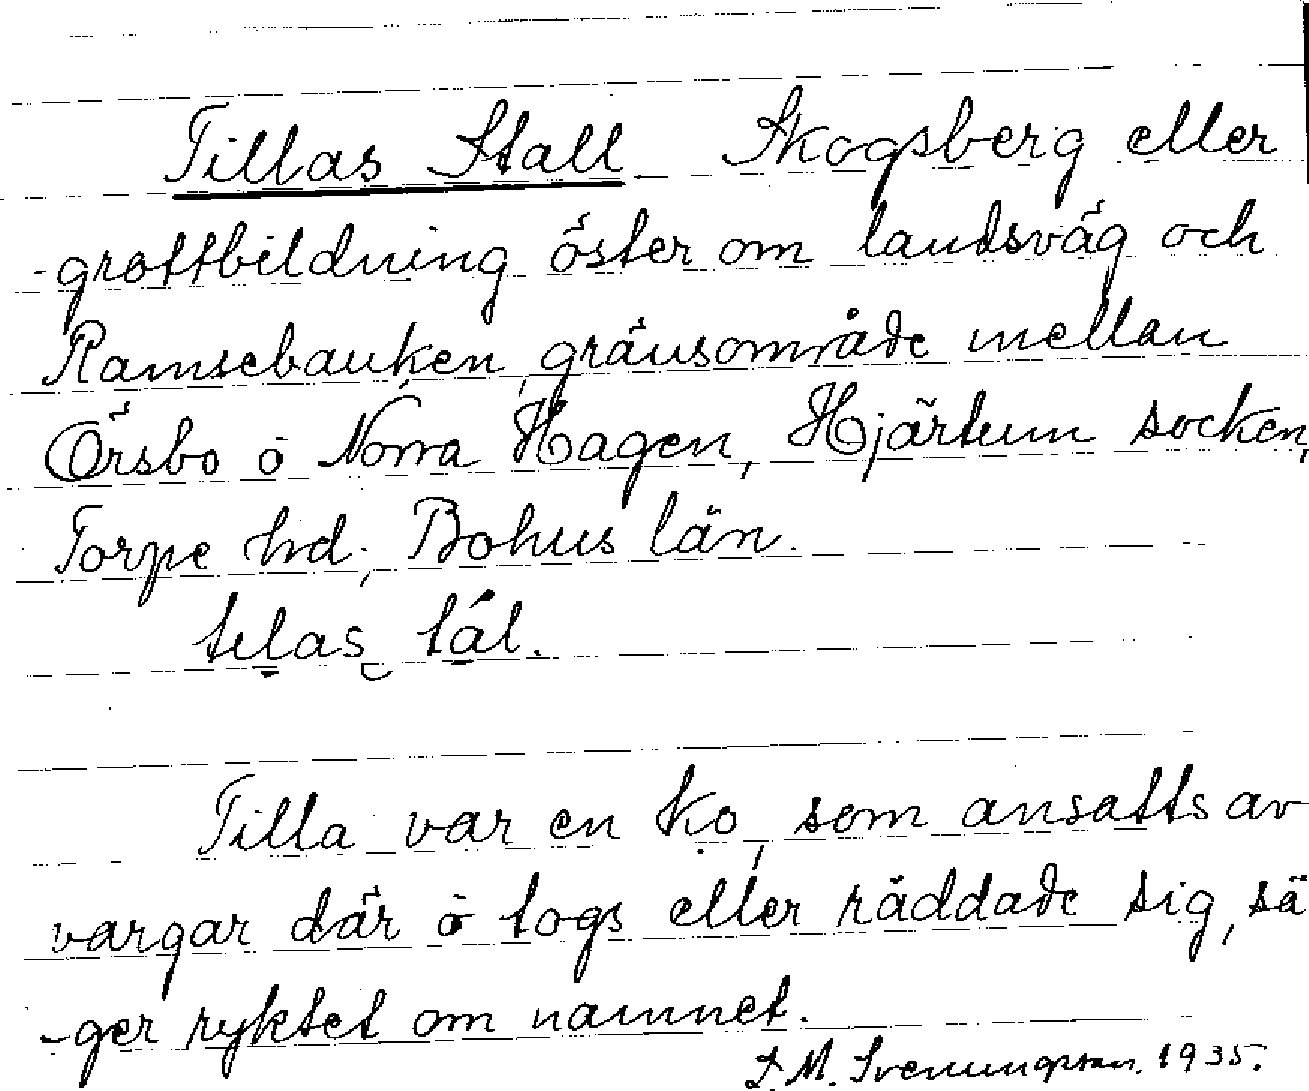 Tillas Stall Skogsberg eller
grottbildning öster om landsväg och
Ramsebanken, gränsområde mellan
Örsbo o Norra Hagen, Hjärtum socken,
Torpe hd, Bohus län.
telas tål.
Tilla var en ko, som ansatts av
vargar där o togs eller räddade sig, sä
-ger ryktet om namnet.
D.M. Svenungsson. 1935.